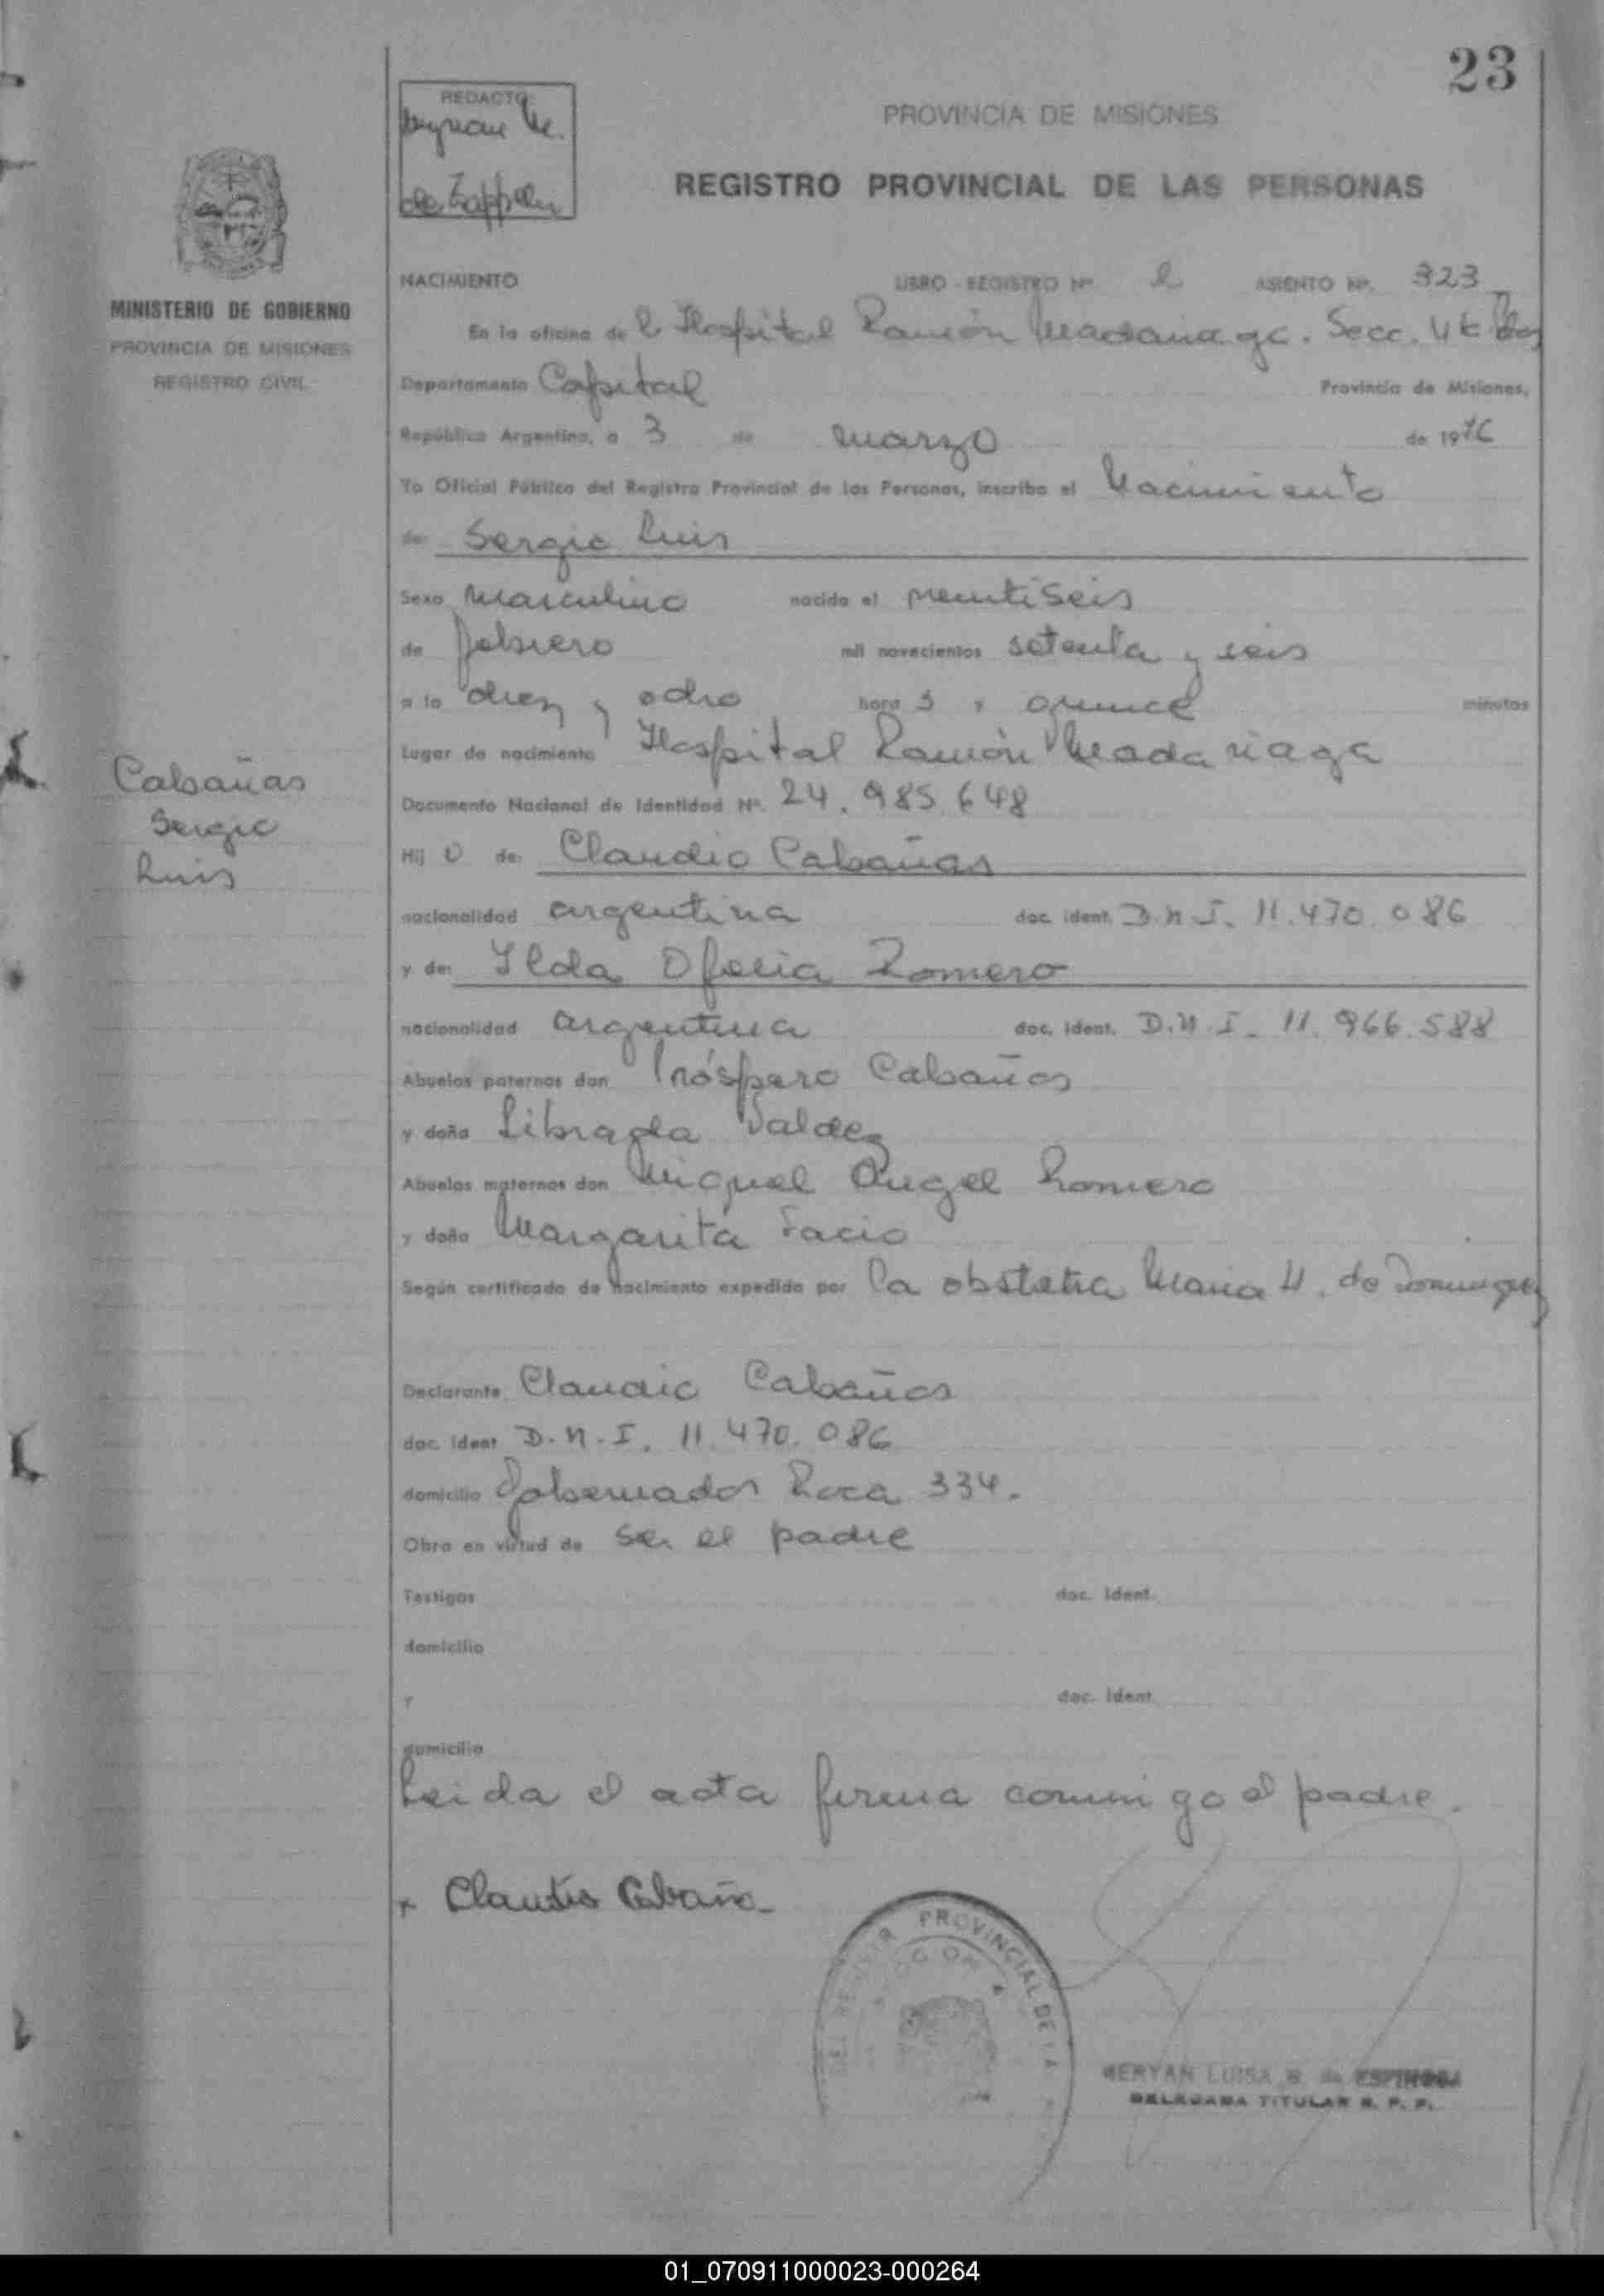 23
REDACTO:
de Zappelu
PROVINCIA DE MISIONES
REGISTRO PROVINCIAL DE LAS PERSONAS
MINISTERIO DE GOBIERNO
PROVINCIA DE MISIONES
REGISTRO CIVIL
NACIMIENTO LIBRO - REGISTRO Nº ASIENTO Nº. 323
En la oficina de l Hospital Ramón Madariaga. Secc. 4ta
Departamento Capital Provincia de Misiones,
República Argentina, a 3 de marzo de 1976
Yo Oficial Público del Registro Provincial de las Personas, inscribo el Nacimiento
de: Sergio Luis
Sexo masculino nacido el veintiseis
de febrero mil novecientos setenta y seis
a la diez y ocho hora s y quince minutos
Lugar de nacimiento Hospital Ramón Madariaga
Documento Nacional de Identidad Nº. 24.985.648
Cabañas
Sergio
Luis
Hij o de: Claudio Cabañas
nacionalidad argentina doc. ident. D.N.I. 11.470.086
y de: Ilda Ofelia Romero
nacionalidad argentina doc. ident. D.N.I. 11.966.588
Abuelos paternos don Próspero Cabañas
y doña Librada Valdez
Abuelos maternos don Miguel Angel Romero
y doña Margarita Facio
Según certificado de nacimiento expedido por la obstetra Maria H. de Dominguez
Declarante Claudio Cabañas
doc. ident D.N.I. 11.470.086
domicilio Gobernador Roca 334.
Obra en virtud de ser el padre
Testigos doc. ident.
domicilio
Y doc. ident.
domicilio
Leida el acta firma conmigo el padre.
x Claudio Cabaña
PROVINCIAL DE LA
MERYAN LUISA R. de ESPINOSA
DELEGADA TITULAR R. P. P.
01_070911000023-000264